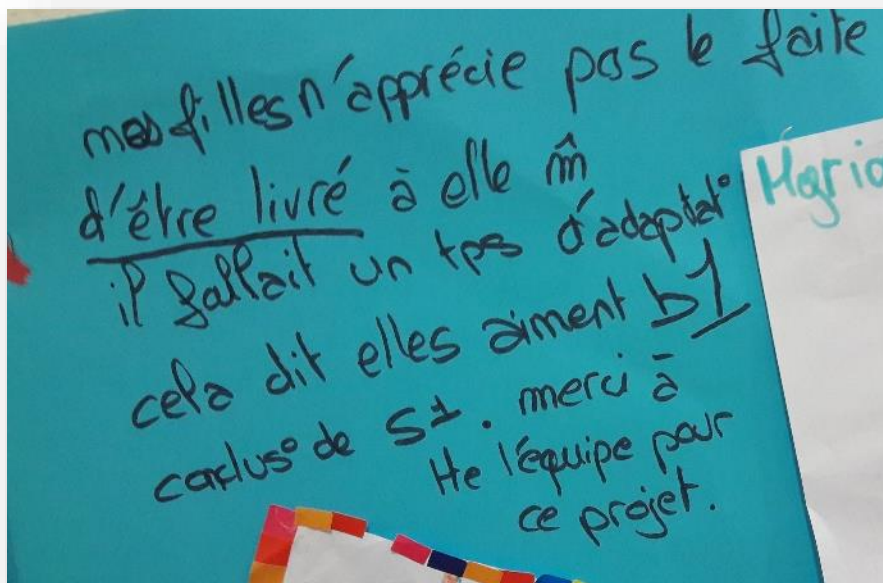 mes filles n'apprécie pas le faite
d'être livré à elle m̂
il fallait un tps d'adaptat°
cela dit elles aiment b1
conclus° de S1. merci à
tte l'équipe pour
ce projet.
Mario